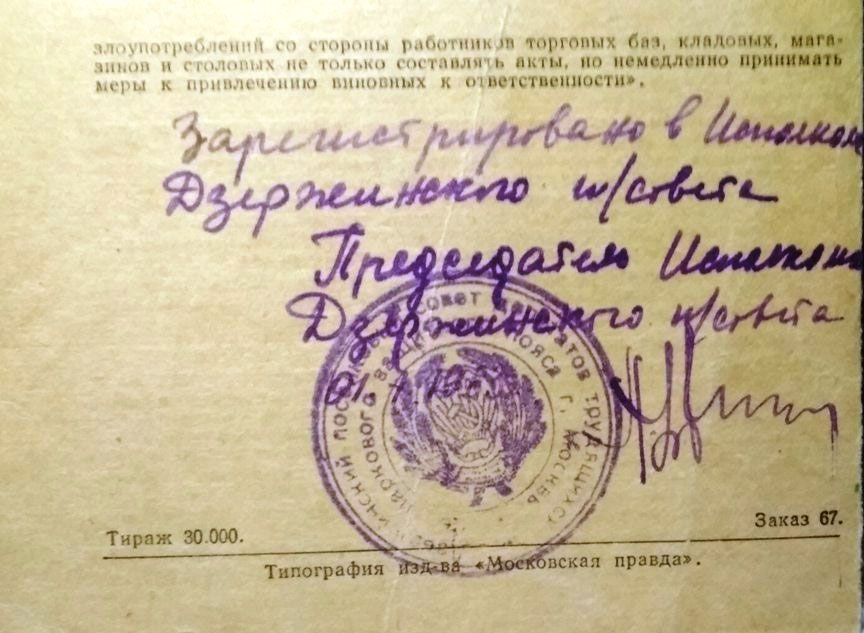 злоупотреблений со стороны работников торговых баз, кладовых, мага-
зинов и столовых не только составлять акты, но немедленно принимать
меры к привлечению виновных к ответственности».
Зарегистрировано в Исполком
Дзержинского п/совета
Председатель Исполкома
Дзержинского п/совета
совет депутатов трудящихся
паркового защитного пояса г. Москвы
Тираж 30.000.
Заказ 67.
Типография изд-ва «Московская правда».